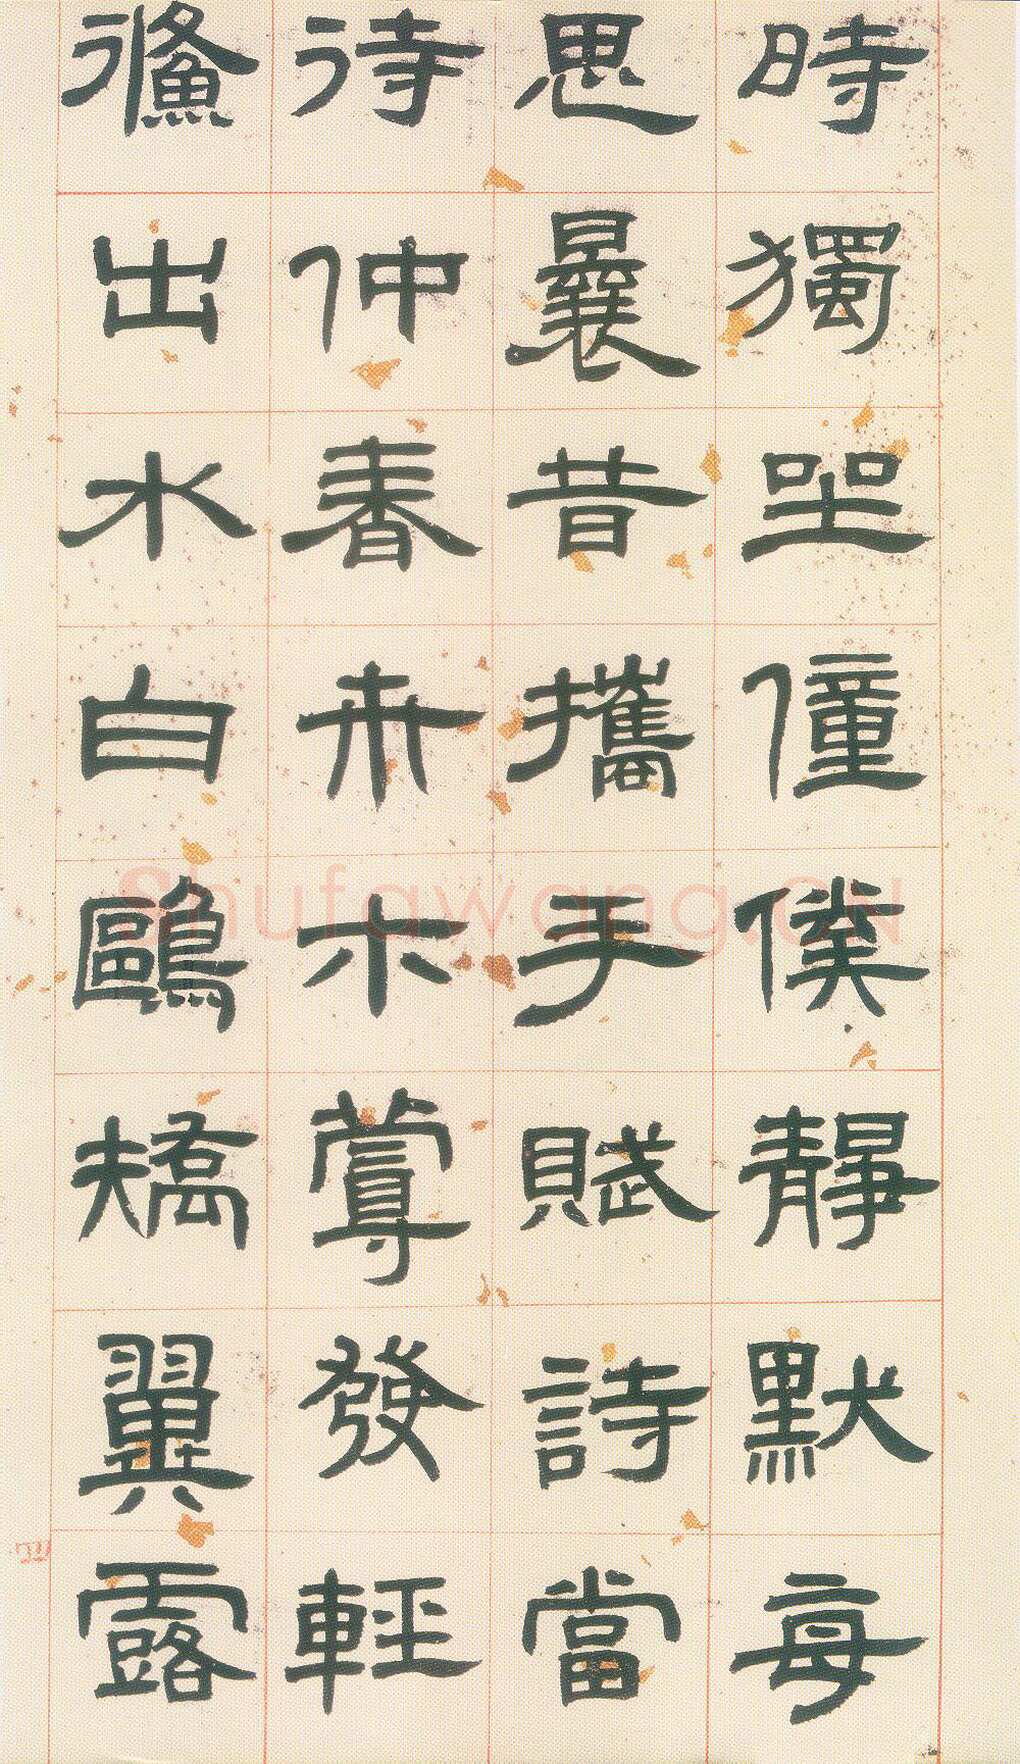 時獨坐僮僕靜默每
思曩昔攜手賦詩當
待仲春卉木蔓發輕
鯈出水白鷗矯翼露
Shufawang.CN